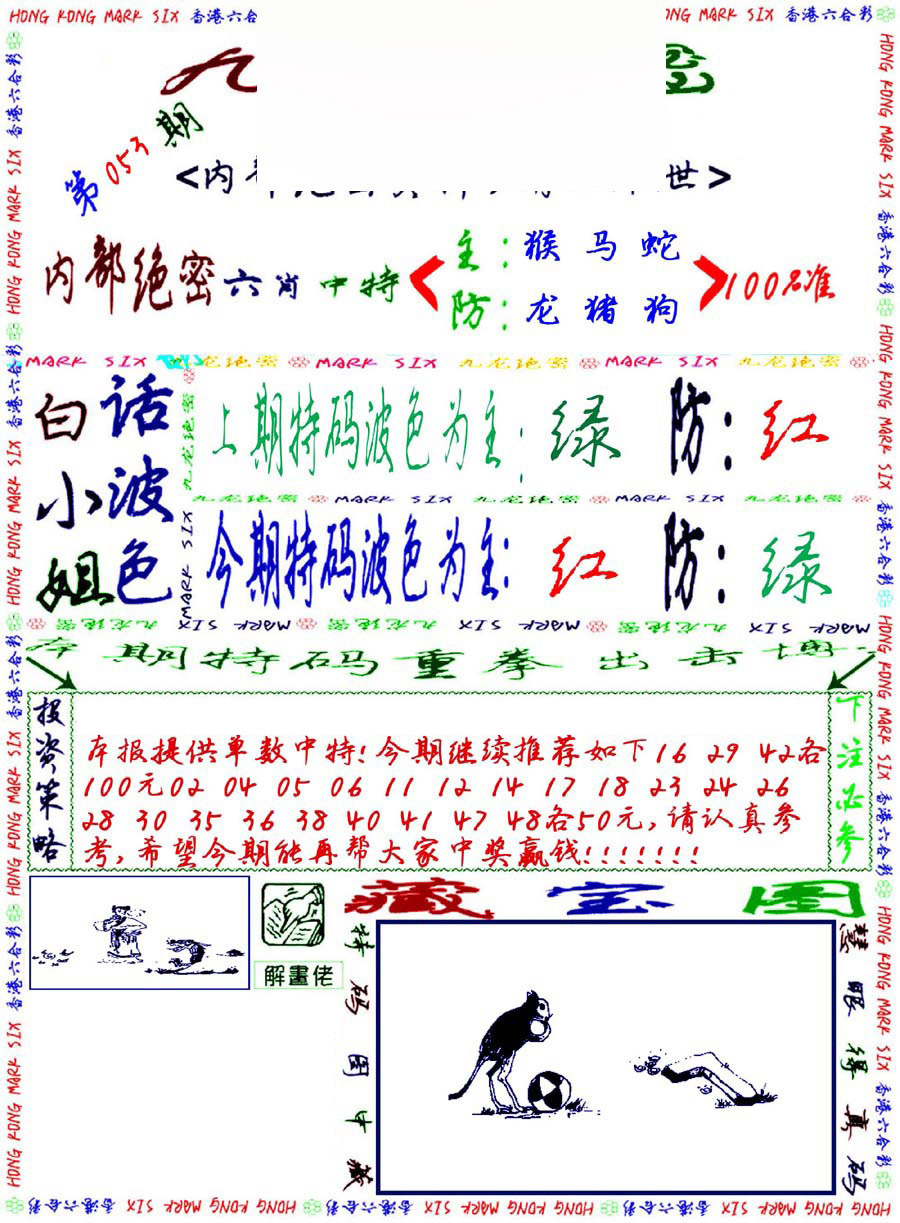 HONG KONG MARK SIX 香港六合彩
九
第053期
<内部
世>
内部绝密六肖中特
主：猴马蛇
防：龙猪狗
100%准
MARK SIX 九龙绝密 MARK SIX 九龙绝密 MARK SIX 九龙绝密
白话
小波
姐色
上期特码波色为主：绿 防：红
九龙绝密 MARK SIX 九龙绝密 MARK SIX 九龙绝密
今期特码波色为主：红 防：绿
九龙绝密 MARK SIX
MARK SIX 九龙绝密 MARK SIX 九龙绝密 MARK SIX 九龙绝密
本期特码重拳出击
投资策略
本报提供单数中特!今期继续推荐如下16 29 42各
100元02 04 05 06 11 12 14 17 18 23 24 26
28 30 35 36 38 40 41 47 48各50元,请认真参
考,希望今期能再帮大家中奖赢钱!!!!!!!
下注必参
解畫佬
藏宝图
特码图中藏
慧眼得真码
HONG KONG MARK SIX 香港六合彩